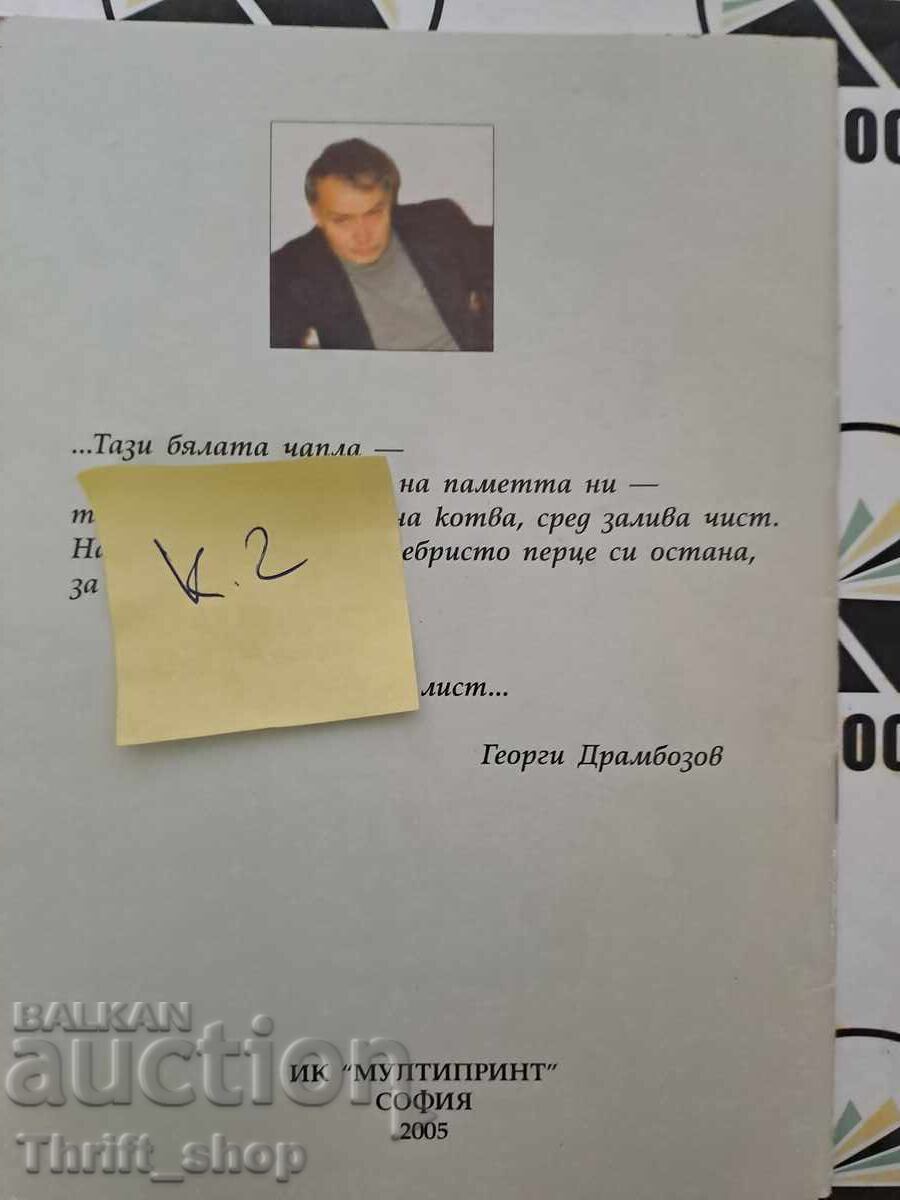 ...Тази бялата чапла —
на паметта ни —
котва, сред залива чист.
перце си остана,
за
лист...
Георги Драмбозов
К. 2
ИК "МУЛТИПРИНТ"
СОФИЯ
2005
BALKAN
auction
Thrift_shop